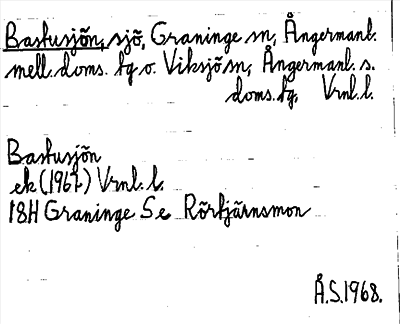 Bastusjön, sjö, Graninge sn, Ångermanl.
mell. doms. tg o. Viksjö sn, Ångermanl. s.
doms. tg, Vrnl. l.
Bastusjön
ek (1967) Vrnl. l.
18H Graninge Se Rörtjärnsmon
Å.S. 1968.